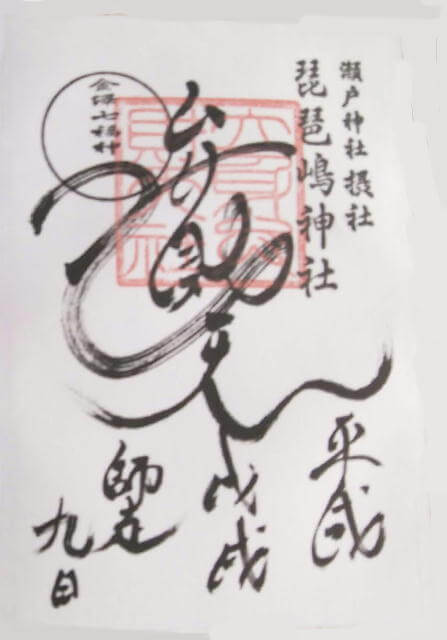 瀬戸神社 摂社
琵琶嶋神社
平成
戊戌
師走
九日
弁財天
金澤七福神